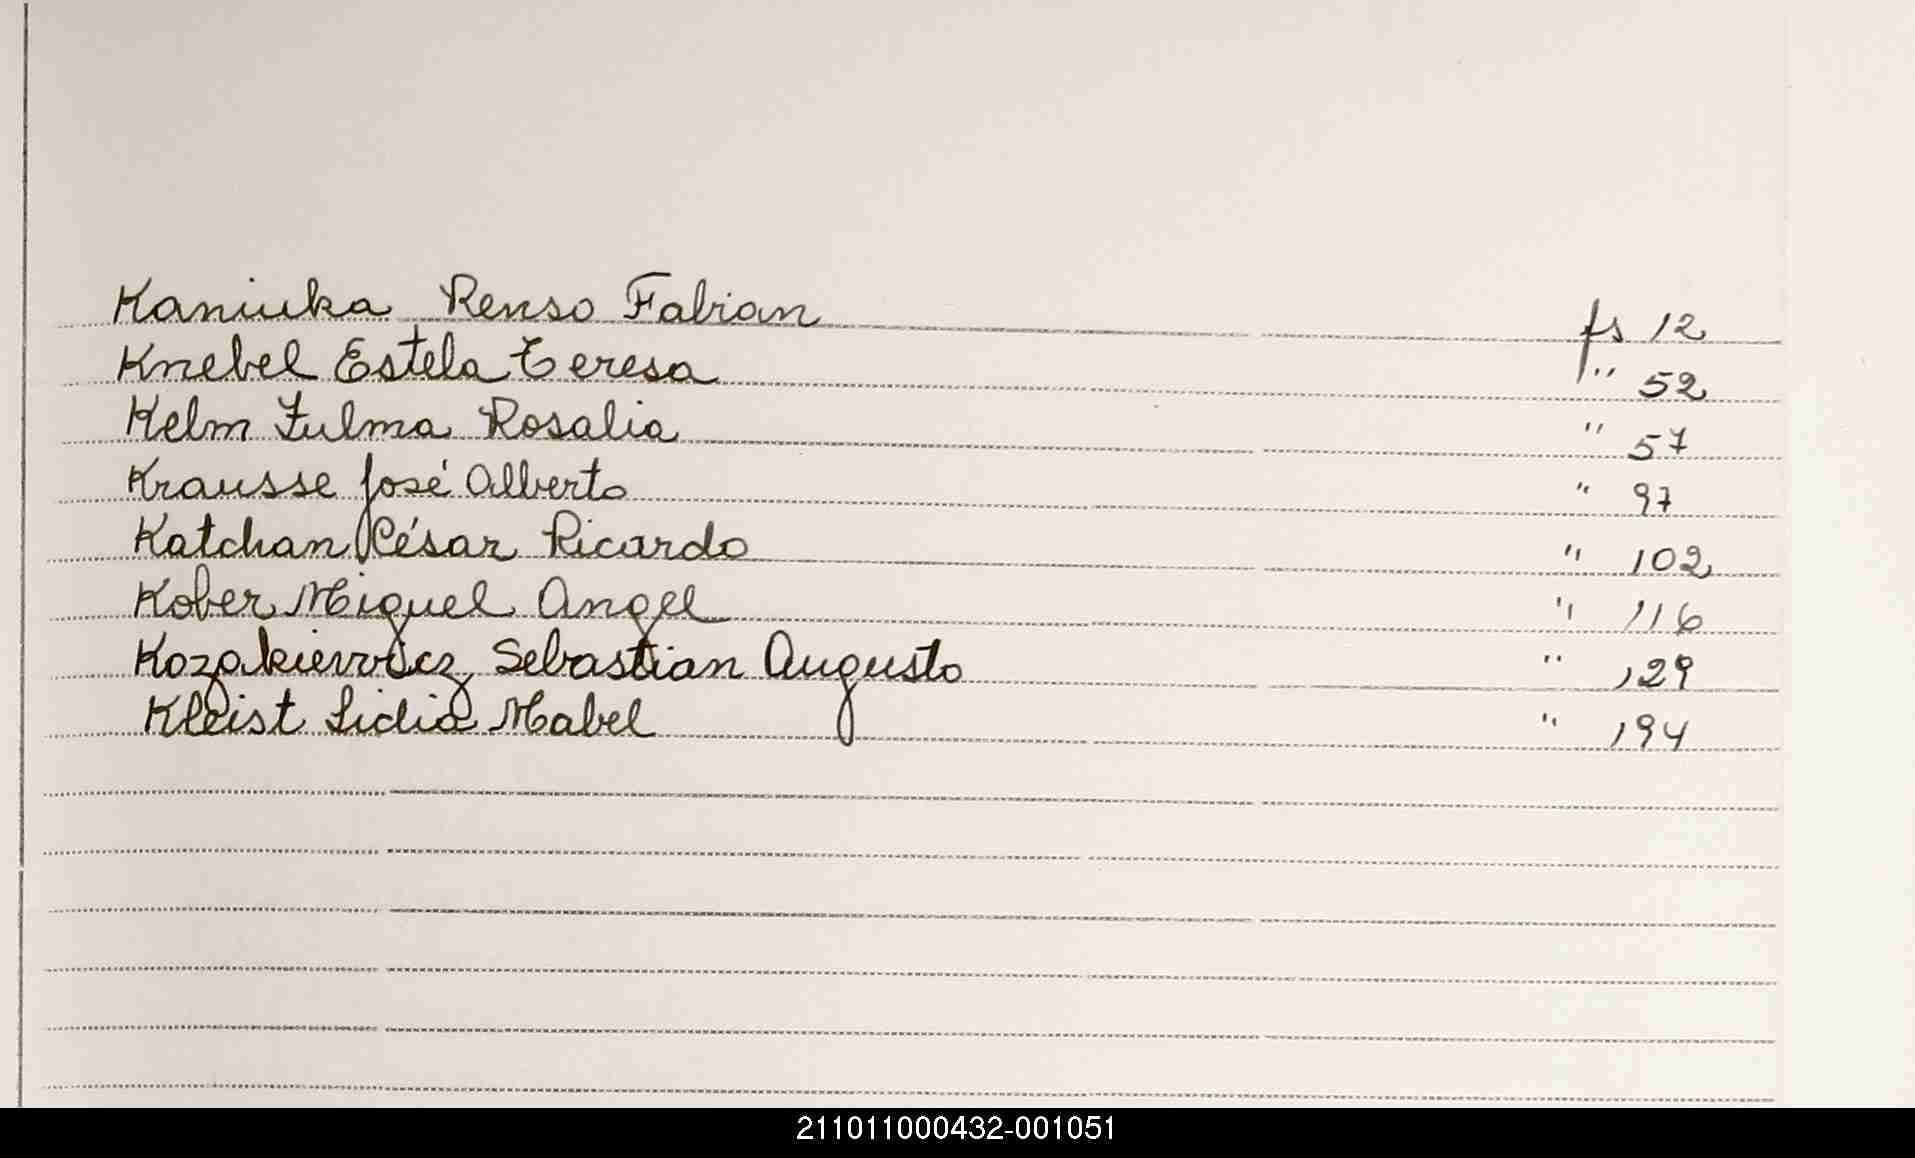 Kaniuka Renso Fabian fs 12
Knebel Estela Teresa " 52
Kelm Zulma Rosalia " 57
Krausse José Alberto " 97
Katchan César Ricardo " 102
Kober Miguel Angel " 116
Kozakievvicz Sebastian Augusto " 129
Kleist Lidia Mabel " 194
211011000432-001051